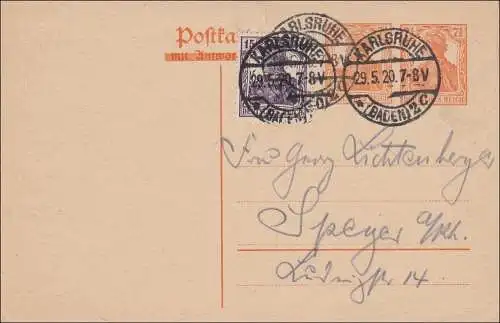 Postka
mit Antwor
15
7½
REICH
KARLSRUHE
29.5.20.7-8V
*(BADEN)2c
KARLSRUHE
29.5.20.7-8V
*(BADEN)2c
KARLSRUHE
Georg Lichtenberger
Speyer a/Rh.
Ludwigstr 14.